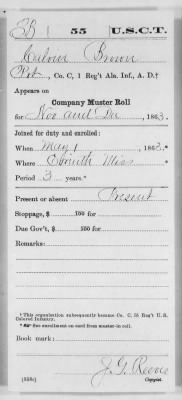 B 55 U.S.C.T.
Calvin Brown
Pvt, Co. C, 1 Reg't Ala. Inf., A. D.†
Appears on
Company Muster Roll
for Nov and Dec, 1863.
Joined for duty and enrolled:
When May 1, 1863.*
Where Corinth Miss
Period 3 years.*
Present or absent Present
Stoppage, $ 100 for
Due Gov't, $ 100 for
Remarks:
† This organization subsequently became Co. C, 55 Reg't U. S. Colored Infantry.
* See enrollment on card from muster-in roll.
Book mark:
J. G. Reeves
(358c) Copyist.